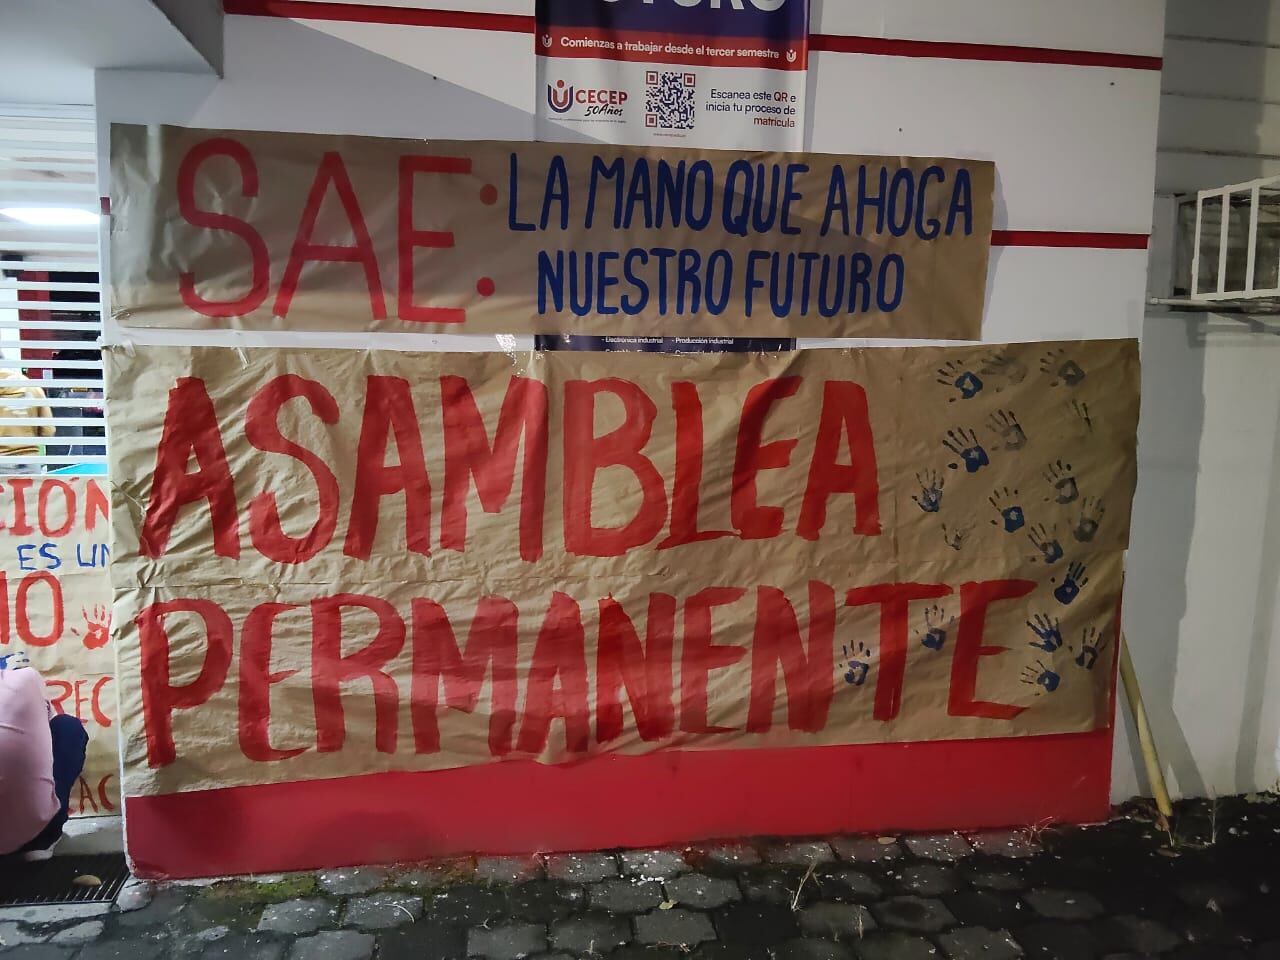 Comienzas a trabajar desde el tercer semestre
CECEP
50 Años
Escanea este QR e
inicia tu proceso de
matrícula
SAE: LA MANO QUE AHOGA
NUESTRO FUTURO
- Electrónica industrial - Producción industrial
ASAMBLEA
PERMANENTE
CIÓN
ES UN